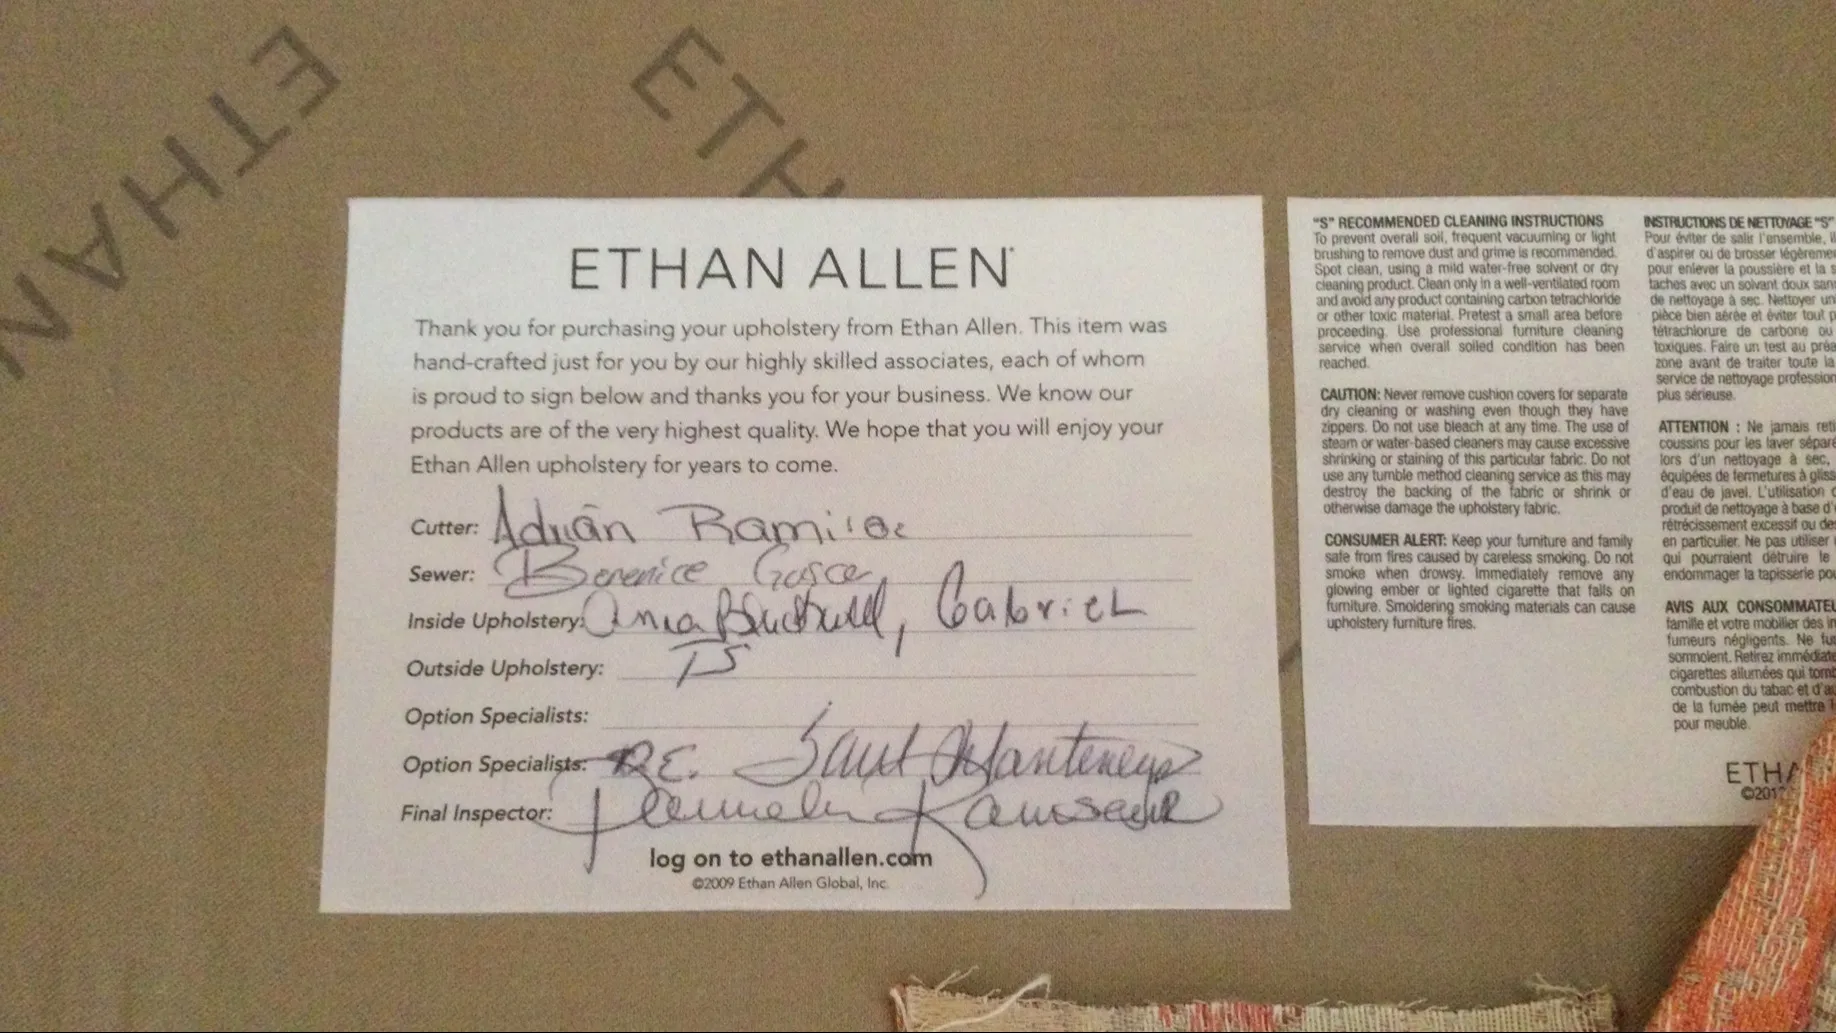 ETHAN
ETH
ETHAN ALLEN
Thank you for purchasing your upholstery from Ethan Allen. This item was
hand-crafted just for you by our highly skilled associates, each of whom
is proud to sign below and thanks you for your business. We know our
products are of the very highest quality. We hope that you will enjoy your
Ethan Allen upholstery for years to come.
Cutter: Adrián
Sewer: Berenice Gasca
Inside Upholstery: , Gabriel
Outside Upholstery: TS
Option Specialists:
Option Specialists:
Final Inspector:
log on to ethanallen.com
©2009 Ethan Allen Global, Inc.
"S" RECOMMENDED CLEANING INSTRUCTIONS
To prevent overall soil, frequent vacuuming or light
brushing to remove dust and grime is recommended.
Spot clean, using a mild water-free solvent or dry
cleaning product. Clean only in a well-ventilated room
and avoid any product containing carbon tetrachloride
or other toxic material. Pretest a small area before
proceeding. Use professional furniture cleaning
service when overall soiled condition has been
reached.
CAUTION: Never remove cushion covers for separate
dry cleaning or washing even though they have
zippers. Do not use bleach at any time. The use of
steam or water-based cleaners may cause excessive
shrinking or staining of this particular fabric. Do not
use any tumble method cleaning service as this may
destroy the backing of the fabric or shrink or
otherwise damage the upholstery fabric.
CONSUMER ALERT: Keep your furniture and family
safe from fires caused by careless smoking. Do not
smoke when drowsy. Immediately remove any
glowing ember or lighted cigarette that falls on
furniture. Smoldering smoking materials can cause
upholstery furniture fires.
INSTRUCTIONS DE NETTOYAGE "S"
Pour éviter de salir l'ensemble, il
d'aspirer ou de brosser légèreme
pour enlever la poussière et la s
taches avec un solvant doux sans
de nettoyage à sec. Nettoyer un
pièce bien aérée et éviter tout p
tétrachlorure de carbone ou
toxiques. Faire un test au préa
zone avant de traiter toute la
service de nettoyage profession
plus sérieuse.
ATTENTION : Ne jamais reti
coussins pour les laver séparé
lors d'un nettoyage à sec,
équipées de fermetures à gliss
d'eau de javel. L'utilisation d
produit de nettoyage à base d'
rétrécissement excessif ou des
en particulier. Ne pas utiliser
qui pourraient détruire le
endommager la tapisserie pou
AVIS AUX CONSOMMATEU
famille et votre mobilier des in
fumeurs négligents. Ne fum
somnolent. Retirez immédiate
cigarettes allumées qui tomb
combustion du tabac et d'au
de la fumée peut mettre
pour meuble.
ETHA
©201